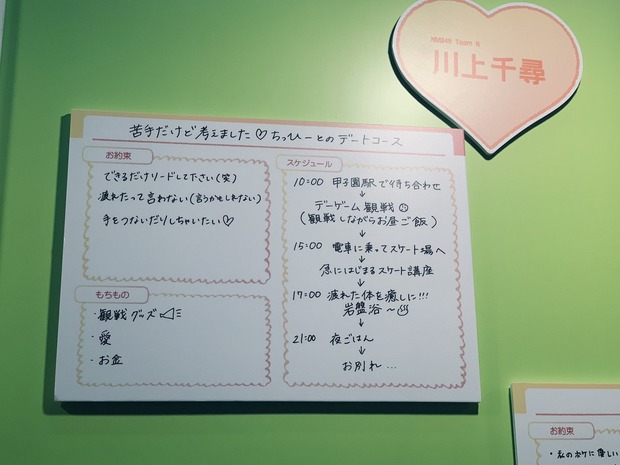 NMB48 Team N
川上千尋
苦手だけど考えました♡ちっひーとのデートコース
お約束
できるだけリードして下さい(笑)
疲れたって言わない(言うかもしれない)
手をつないだりしちゃいたい♡
もちもの
・観戦グッズ
・愛
・お金
スケジュール
10:00 甲子園駅で待ち合わせ
↓
デーゲーム観戦
(観戦しながらお昼ご飯)
↓
15:00 電車に乗ってスケート場へ
↓
急にはじまるスケート講座
↓
17:00 疲れた体を癒しに!!!
岩盤浴〜♨
↓
21:00 夜ごはん
↓
お別れ...
お約束